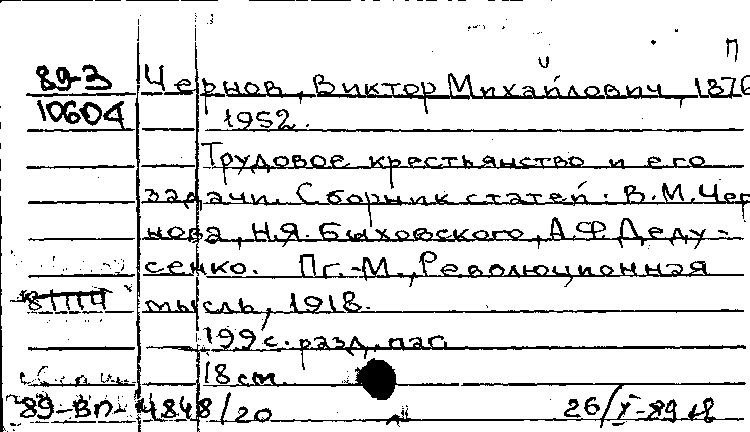 П
89-3 Чернов, Виктор Михайлович, 1876
10604 1952.
Трудовое крестьянство и его
задачи. Сборник статей: В.М.Чер
нова, Н.Я. Быховского, А.Ф Деду-
сенко. Пг.-М., Революционная
мысль, 1918.
199 с. разд. паг.
18 см.
89-ВП-4848/20 26/X-89